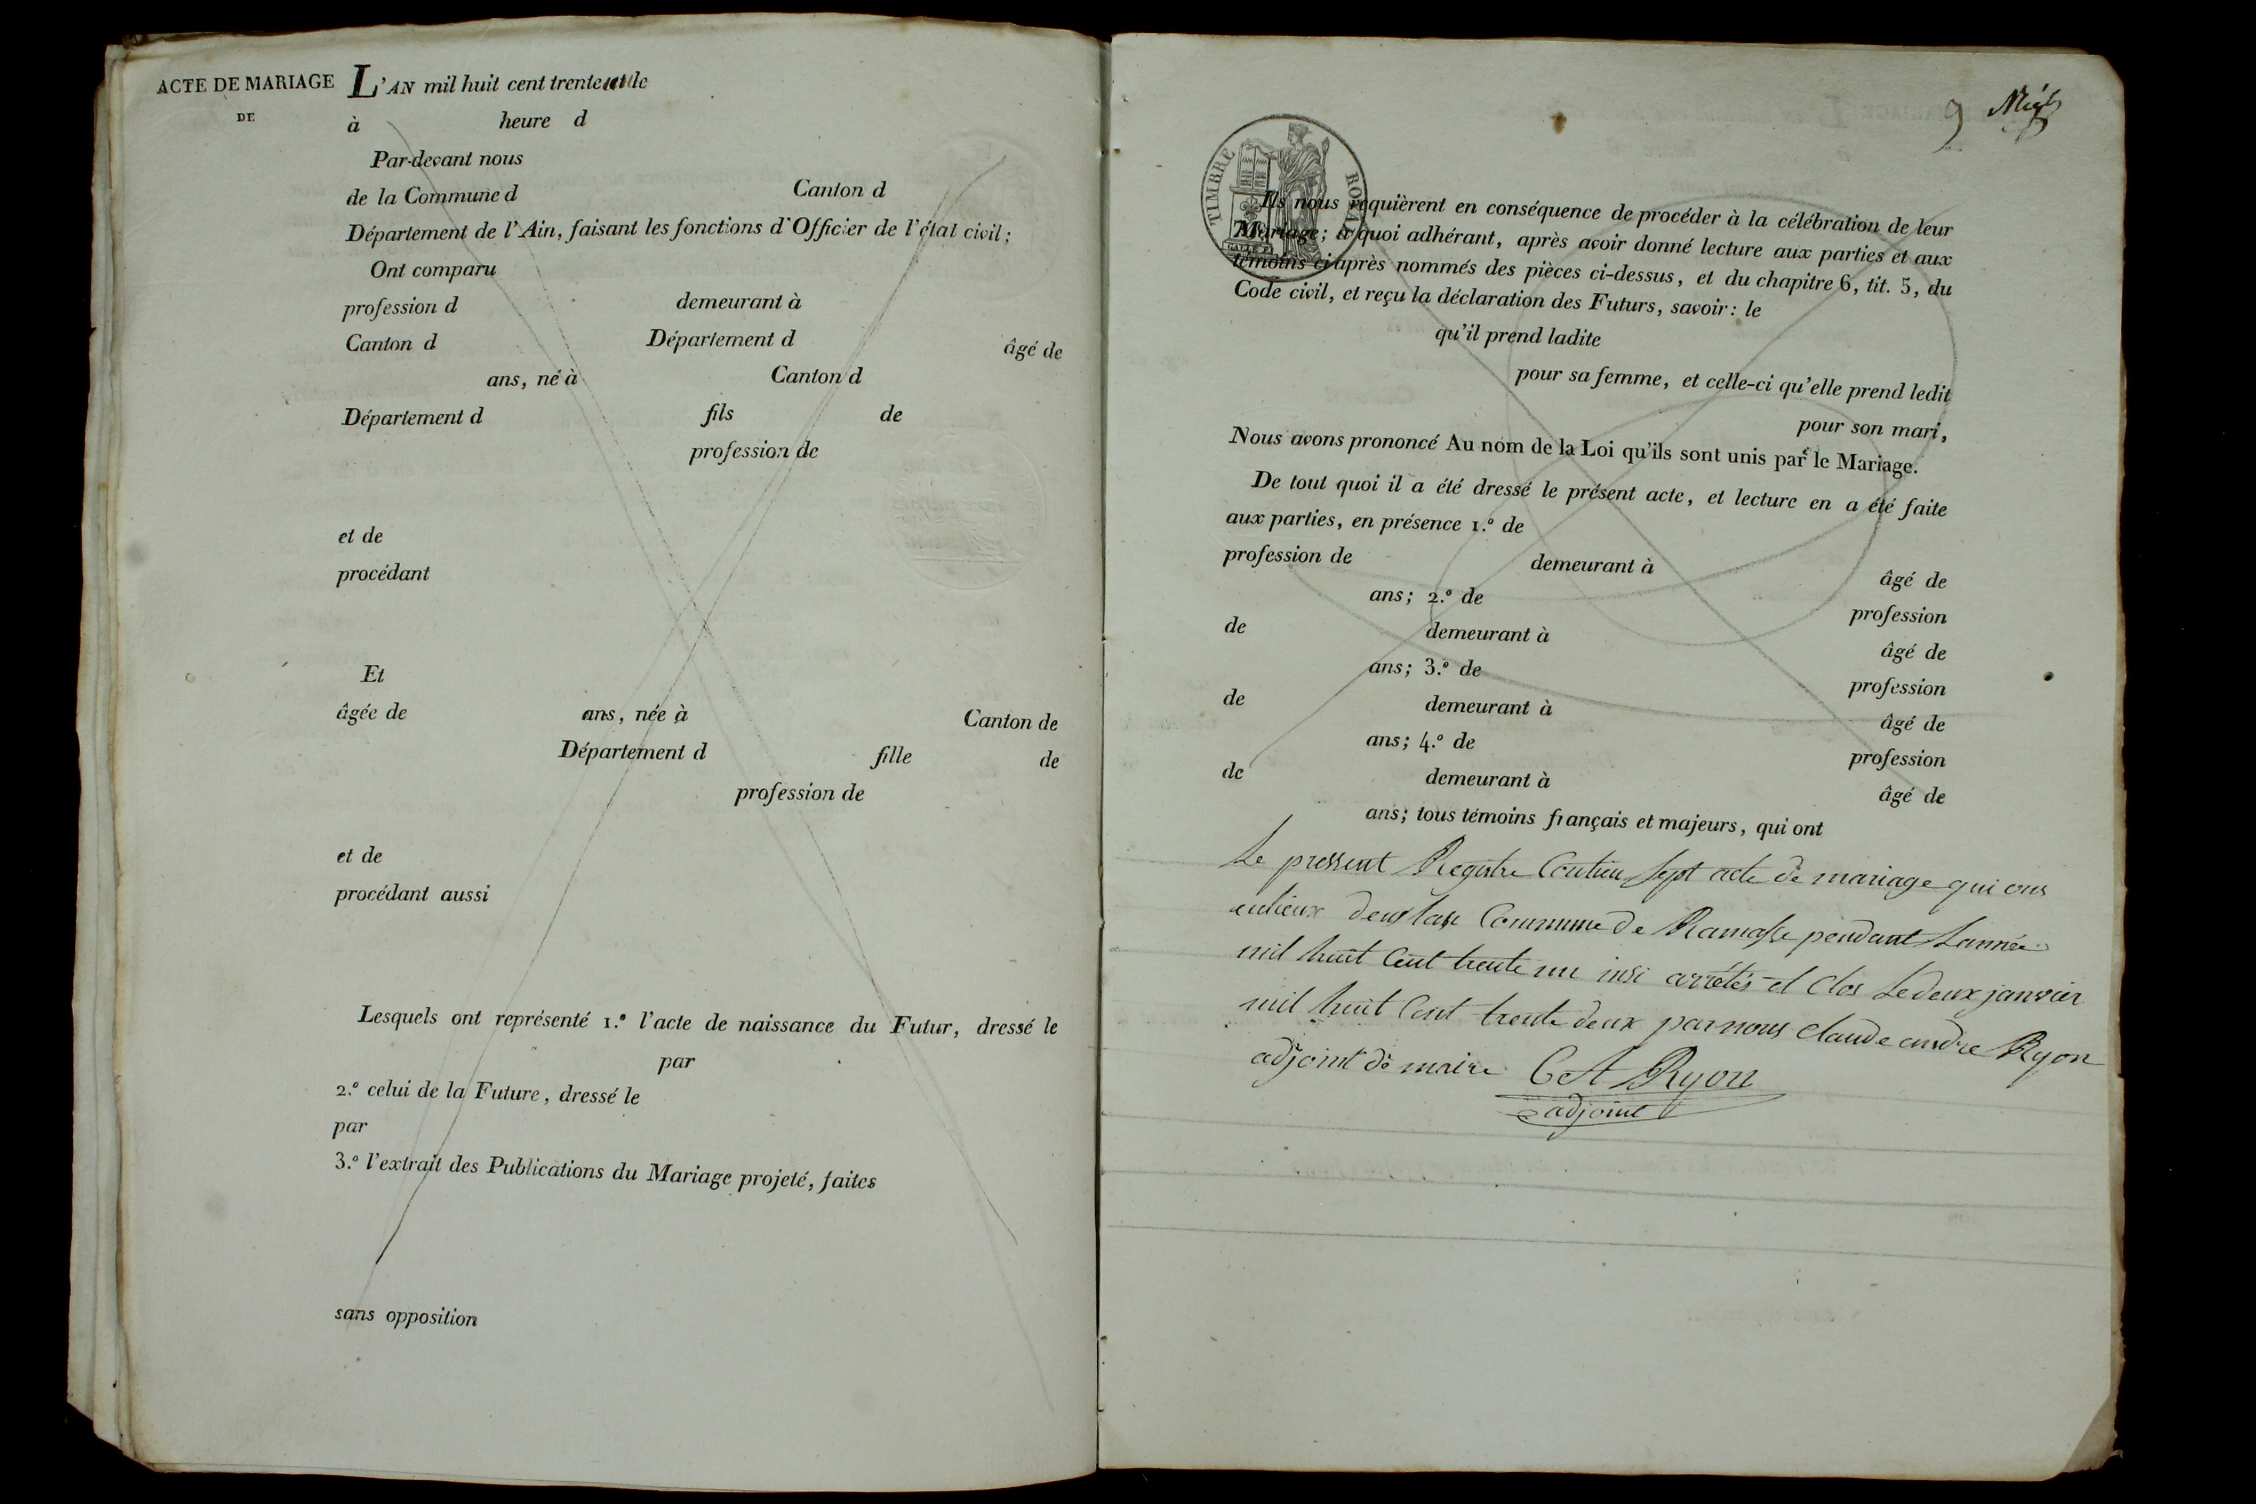 ACTE DE MARIAGE
DE
L'AN mil huit cent trente le
à heure d
Par-devant nous
de la Commune d Canton d
Département de l'Ain, faisant les fonctions d'Officier de l'état civil;
Ont comparu
profession d demeurant à
Canton d Département d âgé de
ans, né à Canton d
Département d fils de
profession de
et de
procédant
Et
âgée de ans, née à Canton de
Département d fille de
profession de
et de
procédant aussi
Lesquels ont représenté 1.º l'acte de naissance du Futur, dressé le
par
2.º celui de la Future, dressé le
par
3.º l'extrait des Publications du Mariage projeté, faites
sans opposition
9
TIMBRE ROYAL
Ils nous requièrent en conséquence de procéder à la célébration de leur
Mariage; à quoi adhérant, après avoir donné lecture aux parties et aux
témoins ci après nommés des pièces ci-dessus, et du chapitre 6, tit. 5, du
Code civil, et reçu la déclaration des Futurs, savoir: le
qu'il prend ladite
pour sa femme, et celle-ci qu'elle prend ledit
pour son mari,
Nous avons prononcé Au nom de la Loi qu'ils sont unis par le Mariage.
De tout quoi il a été dressé le présent acte, et lecture en a été faite
aux parties, en présence 1.º de
profession de demeurant à âgé de
ans; 2.º de profession
de demeurant à âgé de
ans; 3.º de profession
de demeurant à âgé de
ans; 4.º de profession
de demeurant à âgé de
ans; tous témoins français et majeurs, qui ont
Le pressent Registre Contien sept acte de mariage qui ons
eulieux Commune de Ramasse pendant Lannée
mil huit Cent trente un insi arrétés et Clos Le deux janvier
mil huit Cent trente deux par nous Claude andre Ryon
adjoint de maire C A Ryon
adjoint